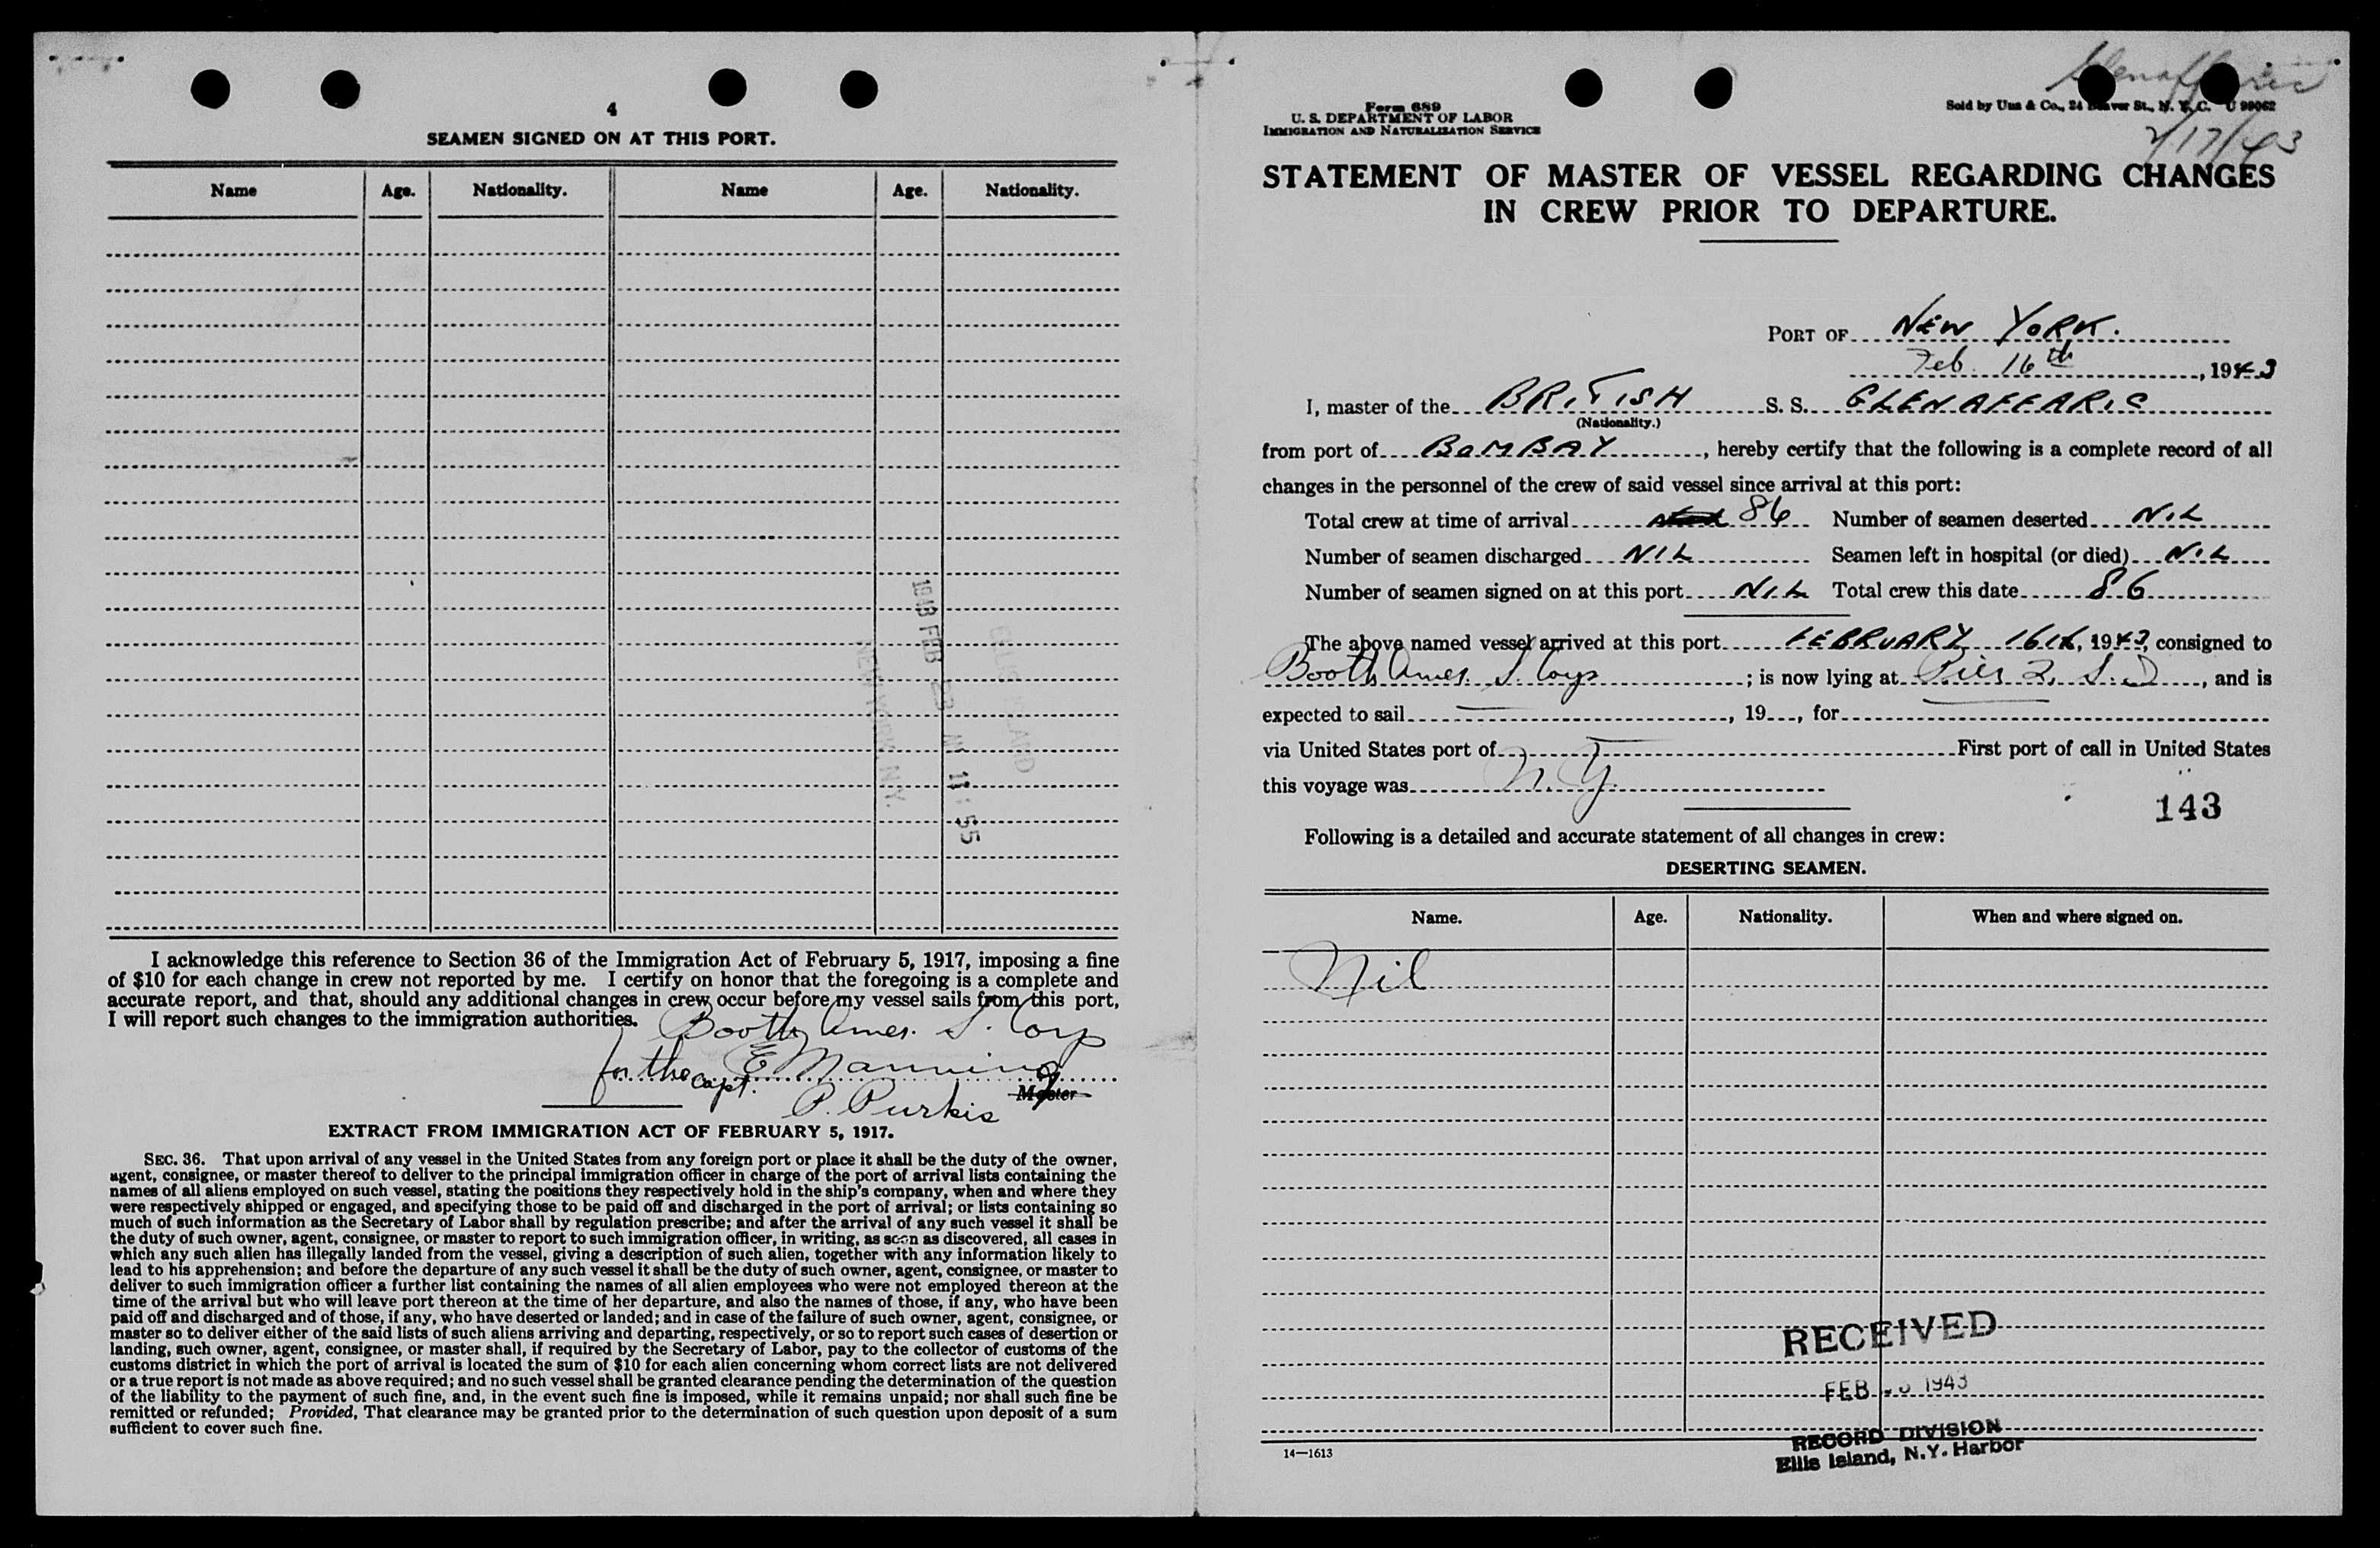 4
SEAMEN SIGNED ON AT THIS PORT.
Name Age. Nationality. Name Age. Nationality.
1943 FEB 23 11:55
ELLIS ISLAND
NEW YORK, N.Y.
I acknowledge this reference to Section 36 of the Immigration Act of February 5, 1917, imposing a fine
of $10 for each change in crew not reported by me. I certify on honor that the foregoing is a complete and
accurate report, and that, should any additional changes in crew occur before my vessel sails from this port,
I will report such changes to the immigration authorities.
Booth Amer. S. Corp
for the Capt. E Manning
Master
P. Purkis
EXTRACT FROM IMMIGRATION ACT OF FEBRUARY 5, 1917.
SEC. 36. That upon arrival of any vessel in the United States from any foreign port or place it shall be the duty of the owner,
agent, consignee, or master thereof to deliver to the principal immigration officer in charge of the port of arrival lists containing the
names of all aliens employed on such vessel, stating the positions they respectively hold in the ship's company, when and where they
were respectively shipped or engaged, and specifying those to be paid off and discharged in the port of arrival; or lists containing so
much of such information as the Secretary of Labor shall by regulation prescribe; and after the arrival of any such vessel it shall be
the duty of such owner, agent, consignee, or master to report to such immigration officer, in writing, as soon as discovered, all cases in
which any such alien has illegally landed from the vessel, giving a description of such alien, together with any information likely to
lead to his apprehension; and before the departure of any such vessel it shall be the duty of such owner, agent, consignee, or master to
deliver to such immigration officer a further list containing the names of all alien employees who were not employed thereon at the
time of the arrival but who will leave port thereon at the time of her departure, and also the names of those, if any, who have been
paid off and discharged and of those, if any, who have deserted or landed; and in case of the failure of such owner, agent, consignee, or
master so to deliver either of the said lists of such aliens arriving and departing, respectively, or so to report such cases of desertion or
landing, such owner, agent, consignee, or master shall, if required by the Secretary of Labor, pay to the collector of customs of the
customs district in which the port of arrival is located the sum of $10 for each alien concerning whom correct lists are not delivered
or a true report is not made as above required; and no such vessel shall be granted clearance pending the determination of the question
of the liability to the payment of such fine, and, in the event such fine is imposed, while it remains unpaid; nor shall such fine be
remitted or refunded; Provided, That clearance may be granted prior to the determination of such question upon deposit of a sum
sufficient to cover such fine.
Glenaffaric
Form 689
U. S. DEPARTMENT OF LABOR
IMMIGRATION AND NATURALIZATION SERVICE
Sold by Unz & Co., 24 Beaver St., N. Y. C. U 99062
2/17/43
STATEMENT OF MASTER OF VESSEL REGARDING CHANGES
IN CREW PRIOR TO DEPARTURE.
PORT OF NEW YORK.
Feb. 16th, 1943
I, master of the BRITISH S. S. GLENAFFARIC
(Nationality.)
from port of BOMBAY, hereby certify that the following is a complete record of all
changes in the personnel of the crew of said vessel since arrival at this port:
Total crew at time of arrival 86 Number of seamen deserted NIL
Number of seamen discharged NIL Seamen left in hospital (or died) NIL
Number of seamen signed on at this port NIL Total crew this date 86
The above named vessel arrived at this port FEBRUARY 16th, 1943, consigned to
Booth Amer. S. Corp; is now lying at Pier 2, S. D, and is
expected to sail, 19, for
via United States port of First port of call in United States
this voyage was N. Y.
143
Following is a detailed and accurate statement of all changes in crew:
DESERTING SEAMEN.
Name. Age. Nationality. When and where signed on.
Nil
RECEIVED
FEB 1943
RECORD DIVISION
Ellis Island, N.Y. Harbor
14—1613